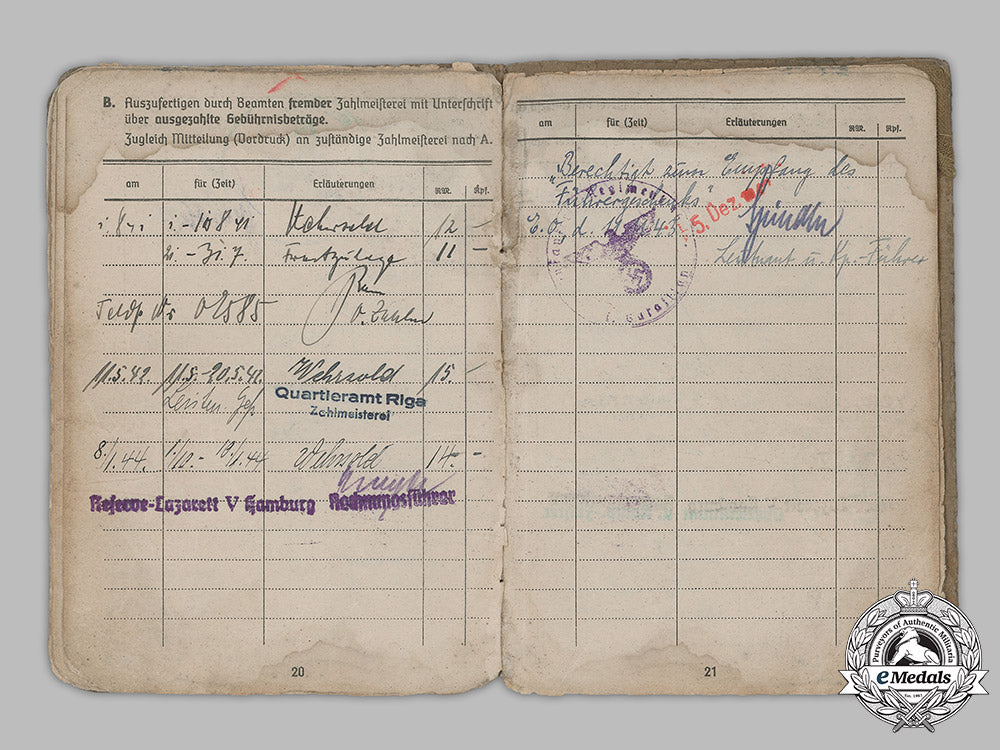 B. Auszufertigen durch Beamten fremder Zahlmeisterei mit Unterschrift
über ausgezahlte Gebührnisbeträge.
Zugleich Mitteilung (Vordruck) an zuständige Zahlmeisterei nach A.
am für (Zeit) Erläuterungen RM. Rpf.
Wehrsold 12 -
Frontzulage 11 -
Feldp Nr 02585
O. Zahlm
11.5.42. 11.5.-20.5.42. Wehrsold 15.-
Quartieramt Riga
Zahlmeisterei
8./1.44. 1./10.- 10./1.44 Wehrsold 14.-
Reserve-Lazarett V Hamburg Rechnungsführer
20
am für (Zeit) Erläuterungen RM. Rpf.
"Berechtigt zum Empfang des
Führergeschenks"
5. Dez.
Leutnant u. Kp.-Führer
21
Purveyors of Authentic Militaria
eMedals